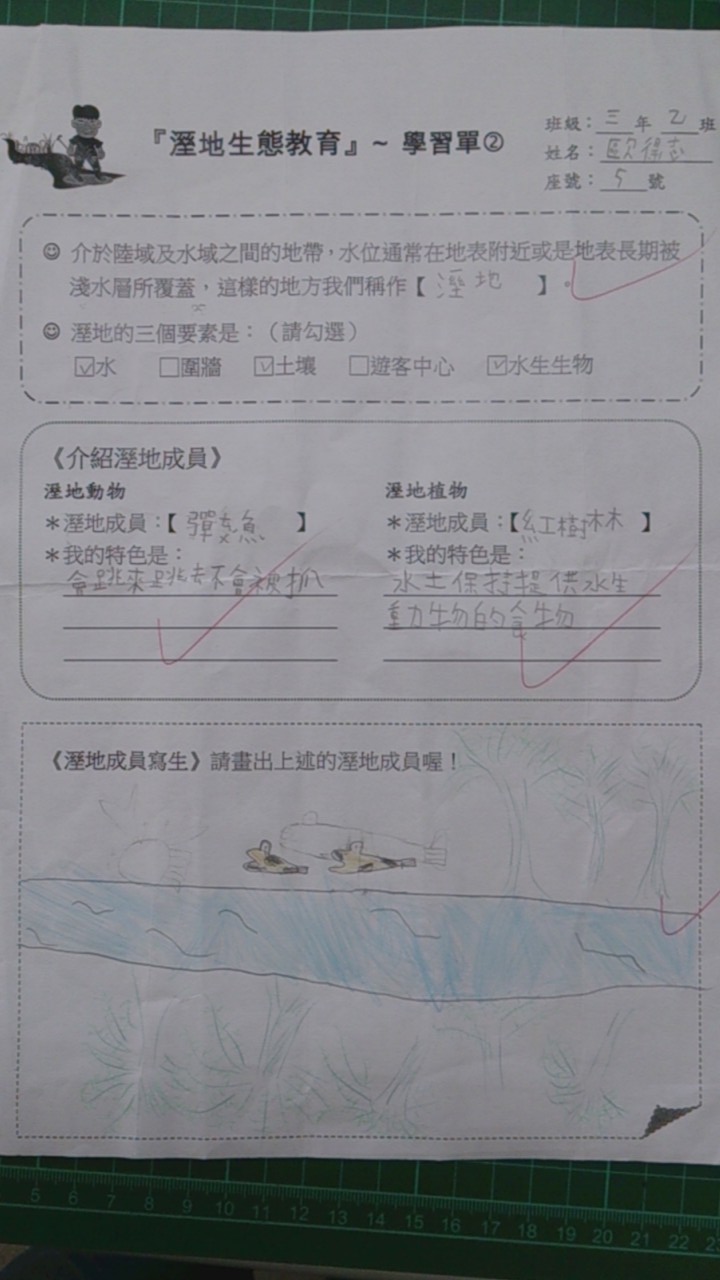 『溼地生態教育』~ 學習單②
班級：三年乙班
姓名：歐得志
座號：5號
☺ 介於陸域及水域之間的地帶，水位通常在地表附近或是地表長期被
淺水層所覆蓋，這樣的地方我們稱作【溼地】。
☺ 溼地的三個要素是：（請勾選）
☑水 □圍牆 ☑土壤 □遊客中心 ☑水生生物
《介紹溼地成員》
溼地動物
＊溼地成員：【彈塗魚】
＊我的特色是：
會跳來跳去不會被抓
溼地植物
＊溼地成員：【紅樹林】
＊我的特色是：
水土保持提供水生
動物的食物
《溼地成員寫生》請畫出上述的溼地成員喔！
5 6 7 8 9 10 11 12 13 14 15 16 17 18 19 20 21 22